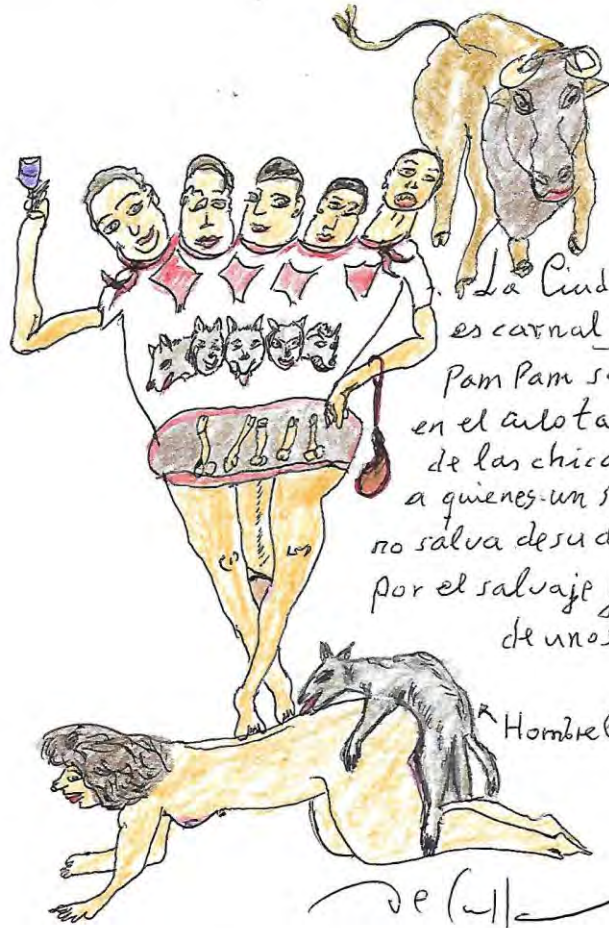 . La Ciud
es carnal
Pam Pam s
en el culo ta
de las chica
a quienes un s
no salva de su d
por el salvaje
de unos
Hombrel
De Culla